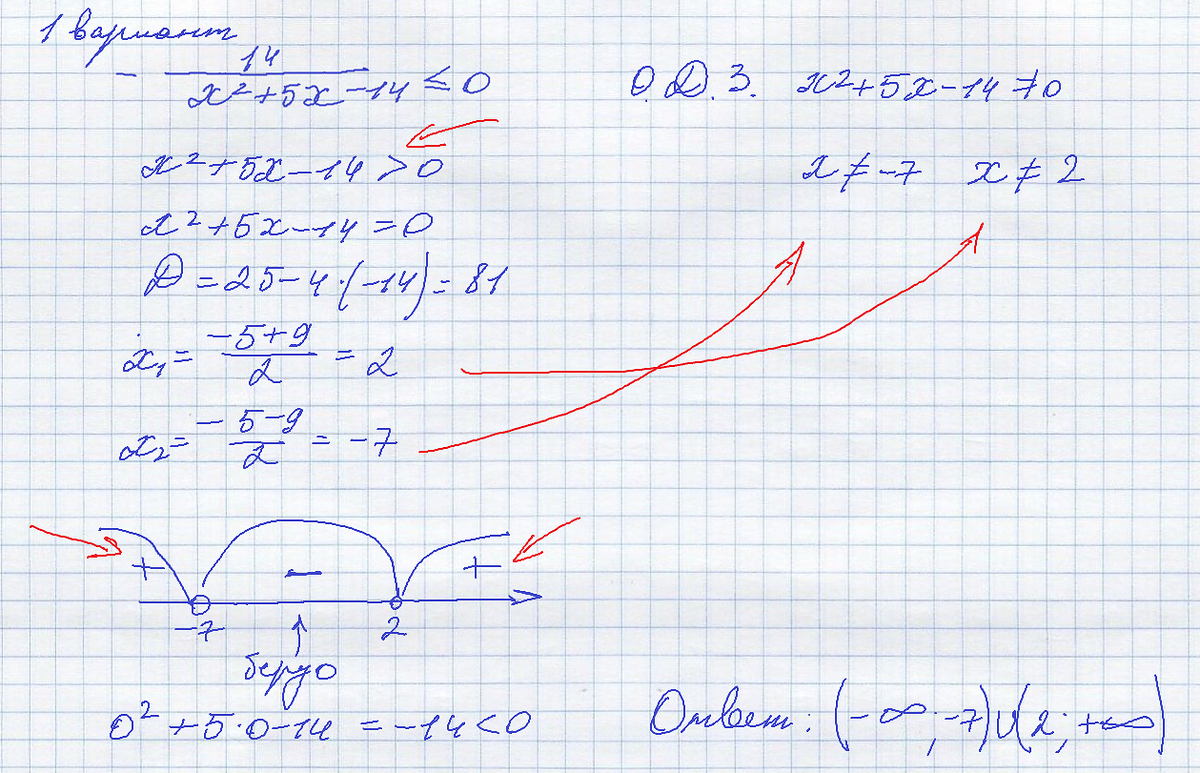 1 вариант
- 14/(x²+5x-14) ≤ 0
О.Д.З. x²+5x-14≠0
x²+5x-14>0
x≠-7 x≠2
x²+5x-14=0
D=25-4·(-14)=81
x₁=(-5+9)/2=2
x₂=(-5-9)/2=-7
+ - +
-7 2
беру 0
0²+5·0-14=-14<0
Ответ: (-∞;-7)∪(2;+∞)